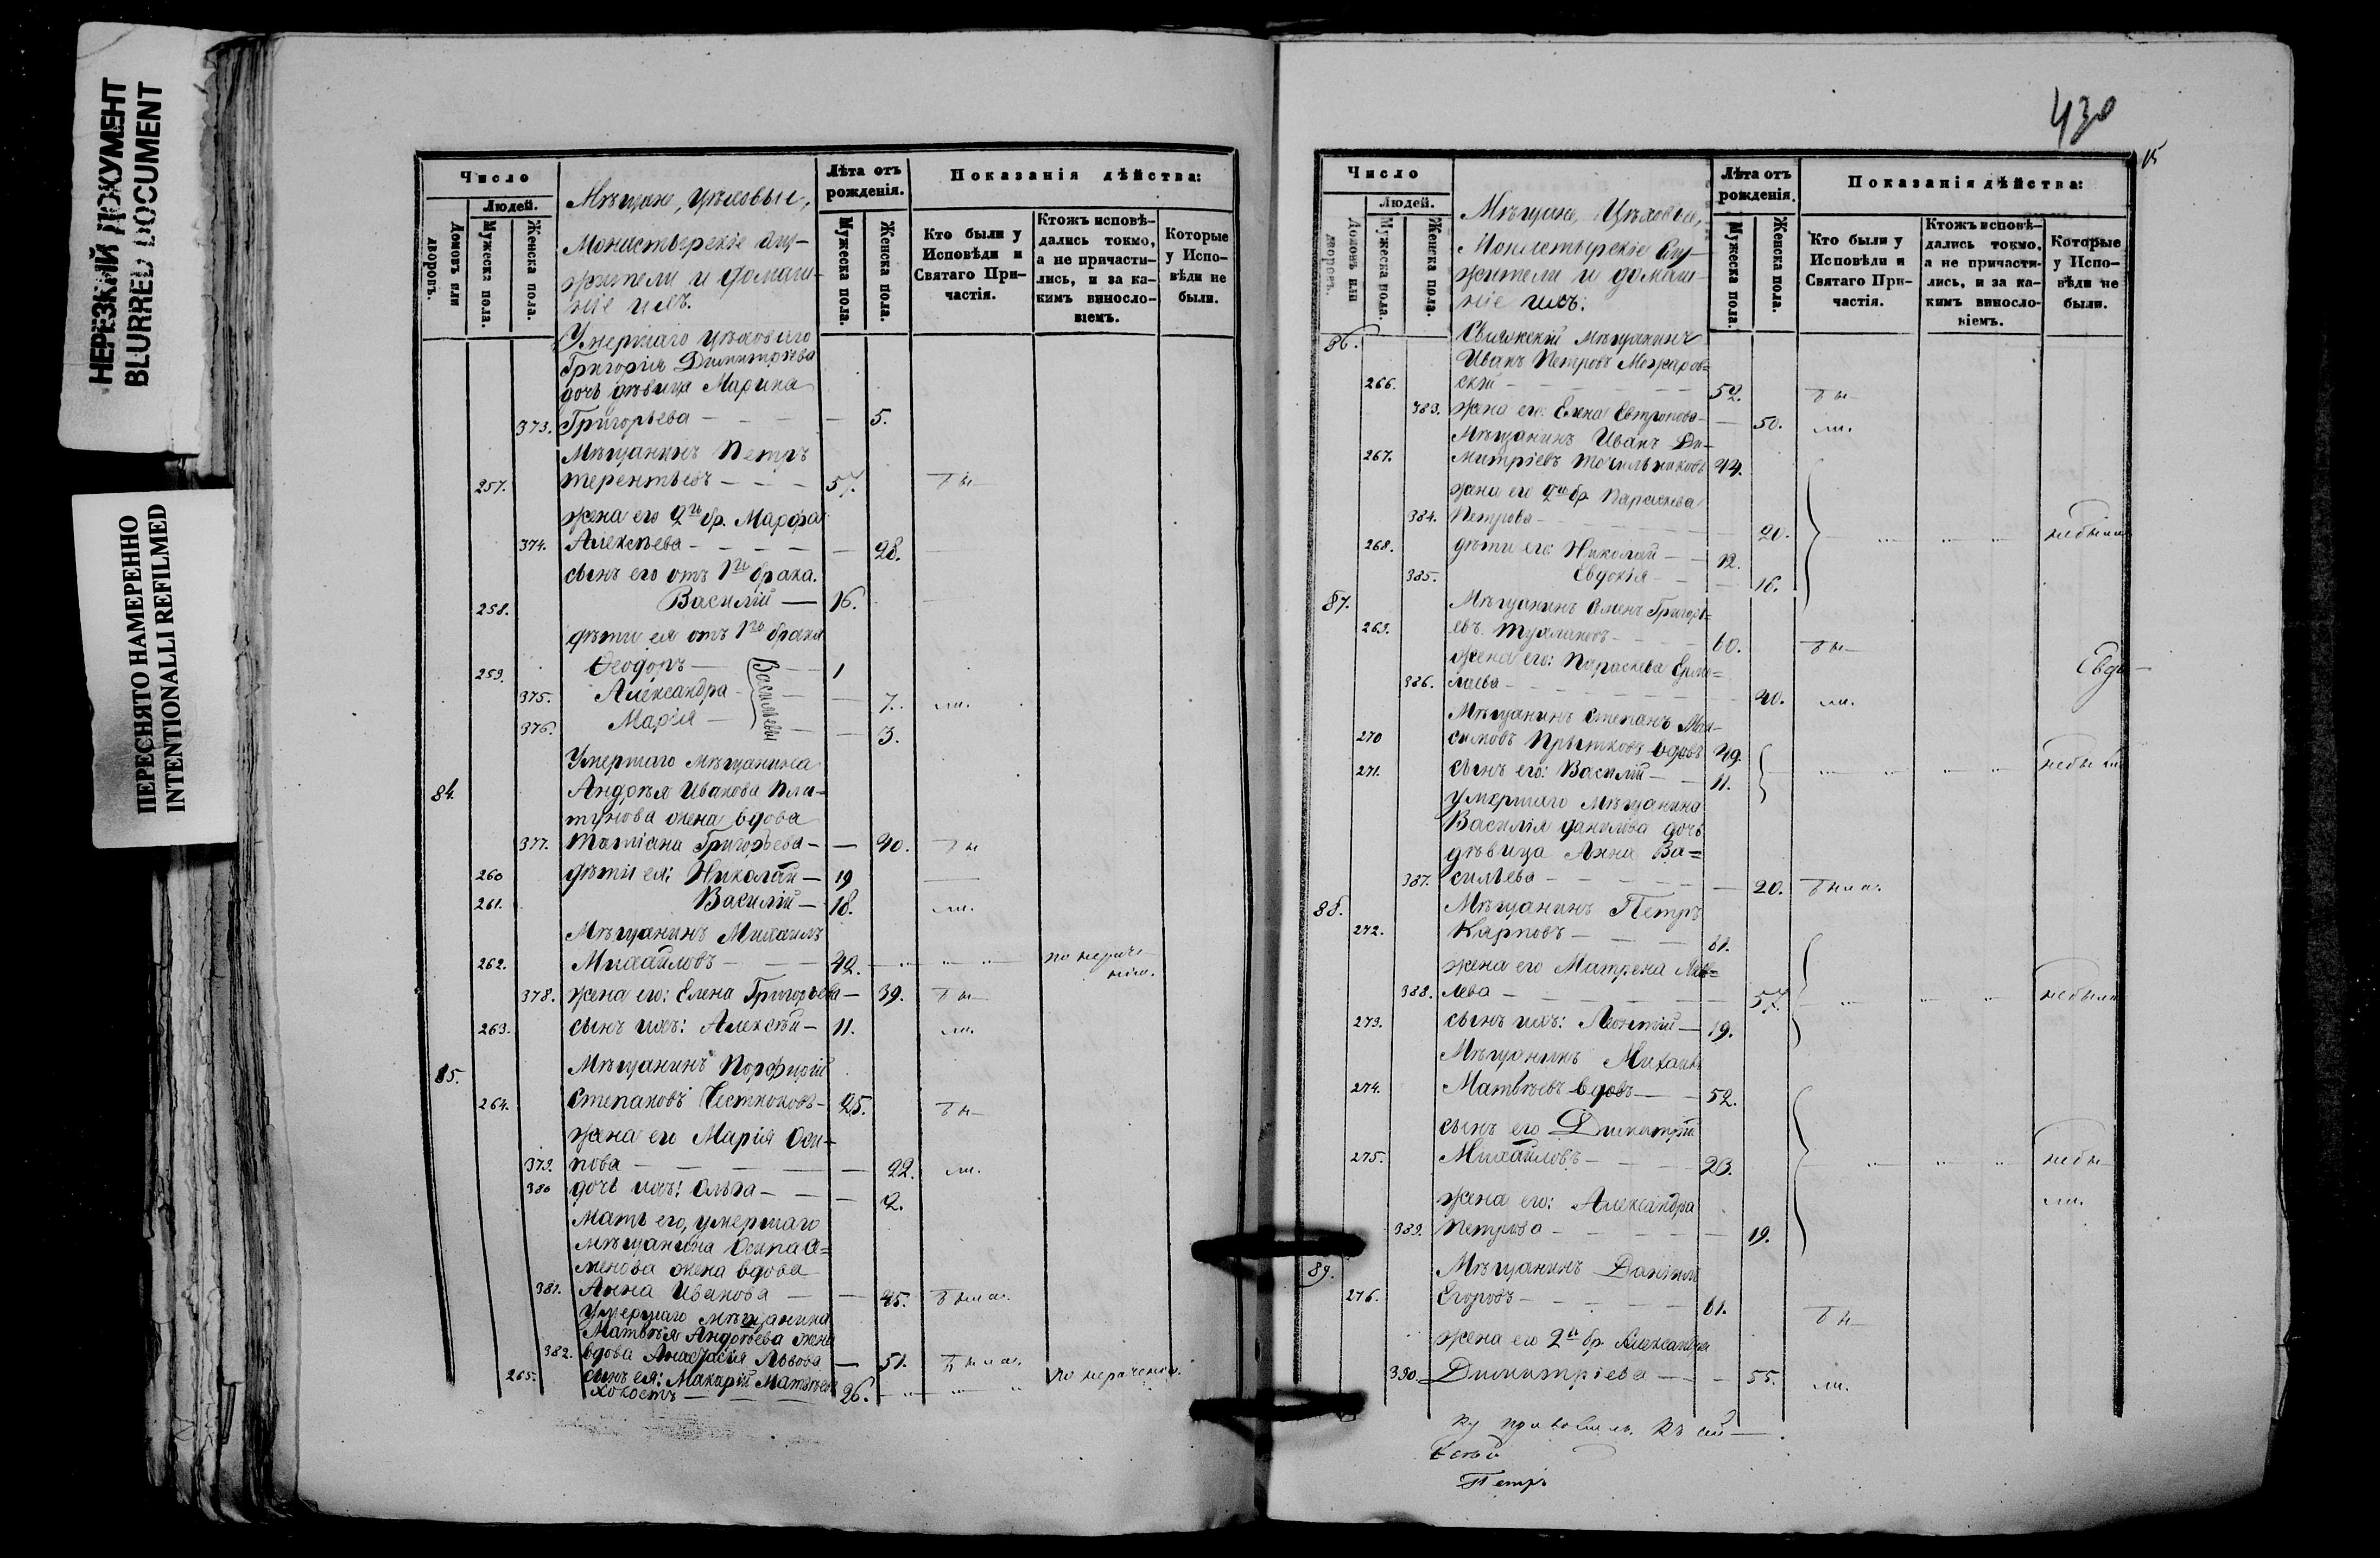 НЕРЕЗКИЙ ДОКУМЕНТ
BLURRED DOCUMENT
ПЕРЕСНЯТО НАМЕРЕННО
INTENTIONALLI REFILMED
Число
Людей.
Домовъ или дворовъ.
Мужеска пола.
Женска пола.
Мѣщане, Цѣховые,
Монастырскіе слу-
жители и домаш-
ніе ихъ.
Лѣта отъ рожденія.
Мужеска пола.
Женска пола.
Показанія дѣйства:
Кто были у Исповѣди и Святаго При-частія.
Ктожъ исповѣ-дались токмо, а не причасти-лись, и за ка-кимъ винносло-віемъ.
Которые у Испо-вѣди не были.
Умершаго цѣховаго
Григорія Димитріева
дочь дѣвица Марина
373. Григорьева — 5.
Мѣщанинъ Петръ
257. Терентьевъ — 57. бы—
жена его 2го бр. Марфа
374. Алексѣева — 28.
сынъ его отъ 1го брака.
258. Василій — 16.
дѣти ея отъ 1го брака
259. Ѳеодоръ — 1
375. Александра — 7. ли.
376. Марія — 3.
Васильевы
Умершаго мѣщанина
84. Андрея Иванова Пла-
тунова жена вдова
377. Татіана Григорьева — 40. бы
260 дѣти ея: Николай — 19
261. Василій — 18. ли.
Мѣщанинъ Михаилъ
262. Михайловъ — 42. по нераче-
нію.
378. жена его: Елена Григорьева — 39. бы—
263. сынъ ихъ: Алексѣй — 11. ли.
85. Мѣщанинъ Порфирій
264. Степановъ — 25. бы—
жена его Марія Оси-
379. пова — 22. ли.
380 дочь ихъ: Ольга — 2.
Мать его, умершаго
мѣщанина Осипа С=
менова жена вдова
381. Анна Иванова — 45. была.
Умершаго мѣщанина
Матвѣя Андреева жена
382. вдова Анастасія Львова — 51. была.
265. сынъ ея: Макарій Матвѣевъ
холостъ — 26. по нераченію.
430
Число
Людей.
Домовъ или дворовъ.
Мужеска пола.
Женска пола.
Мѣщане, Цѣховые,
Монастырскіе слу-
жители и домаш-
ніе ихъ:
Лѣта отъ рожденія.
Мужеска пола.
Женска пола.
Показанія дѣйства:
Кто были у Исповѣди и Святаго При-частія.
Ктожъ исповѣ-дались токмо, а не причасти-лись, и за ка-кимъ винносло-віемъ.
Которые у Испо-вѣди не были.
86. Свіяжскій мѣщанинъ
Иванъ Петровъ Можаров=
266. скій — 52. бы—
383. жена его: Елена — 50. ли.
Мѣщанинъ Иванъ Ди-
267. митріевъ Точильниковъ 44.
жена его 2го бр. Параскева
384. Петрова — 20. небыли
268. дѣти его: Николай — 12.
385. Евдокія — 16.
87. Мѣщанинъ Семенъ Григорь=
269. евъ — 60. бы—
жена его: Параскева Ермо=
386. лаева — 40. ли.
Мѣщанинъ Степанъ Мак-
270 симовъ Прытковъ вдовъ 49. небыли
271. сынъ его: Василій — 11.
умершаго мѣщанина
Василія Данилова дочь
дѣвица Анна Ва=
387. сильева — 20. была.
88. Мѣщанинъ Петръ
272. Карповъ — 61.
жена его Матрена
388. лева — 57. небыли
273. сынъ ихъ: Леонтій — 19.
Мѣщанинъ Михаилъ
274. Матвѣевъ вдовъ — 52.
сынъ его Димитрій
275. Михайловъ — 23. небы—
жена его: Александра ли.
389. Петрова — 19.
89. Мѣщанинъ Даніилъ
276. Егоровъ — 61. бы—
жена его 2го бр. Александра
390. Димитріева — 55. ли.
Петръ